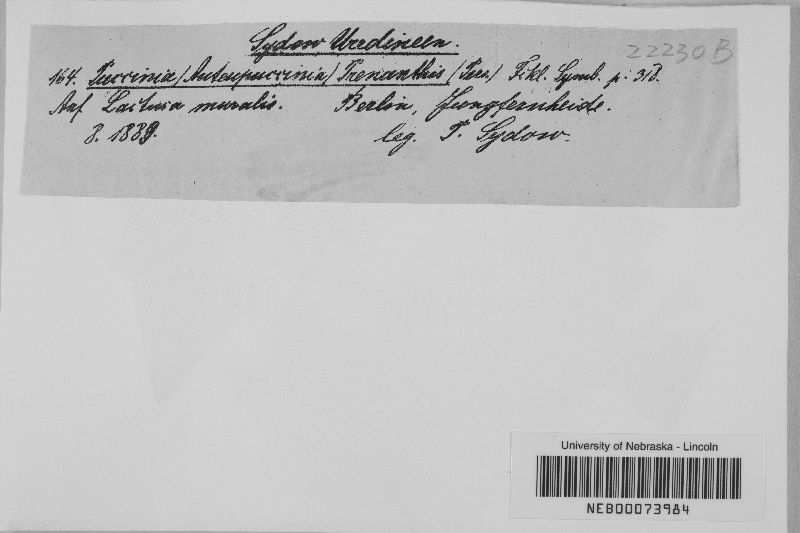 Sydow Uredineen.
22230B
164. Puccinia (Auteupuccinia) Prenanthis (Pers.) Fckl. Symb. p.
Auf Lactuca muralis. Berlin, Jungfernheide.
8. 1889. leg. P. Sydow.
University of Nebraska - Lincoln
NEB00073984